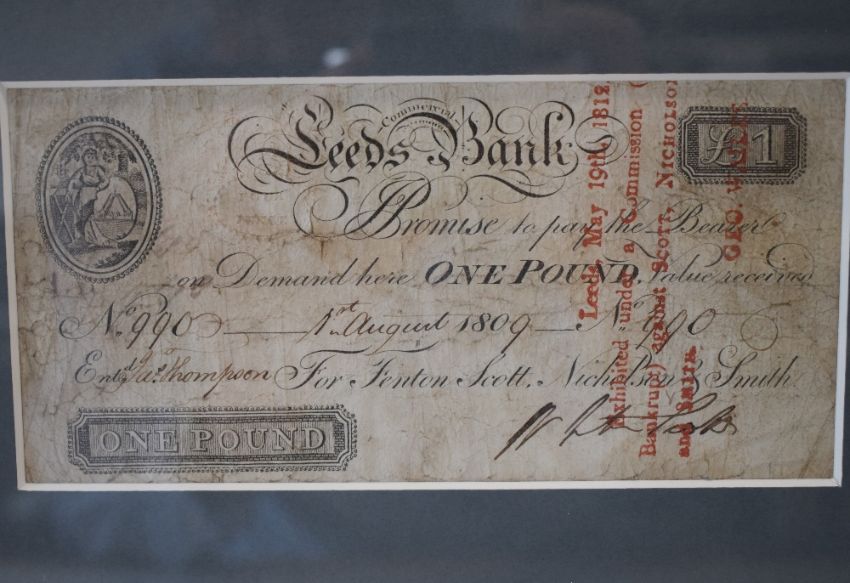 Leeds Commercial Bank
£1
I Promise to pay the Bearer
on Demand here ONE POUND, Value received
No. 990 1st August 1809 No. 990
Entd. Jas. Thompson For Fenton Scott, Nicholson & Smith
ONE POUND
Leeds, May 19th, 1812,
Exhibited under a Commission (
Bankrupt) against Scott, Nicholson
and Smith.
GEO.